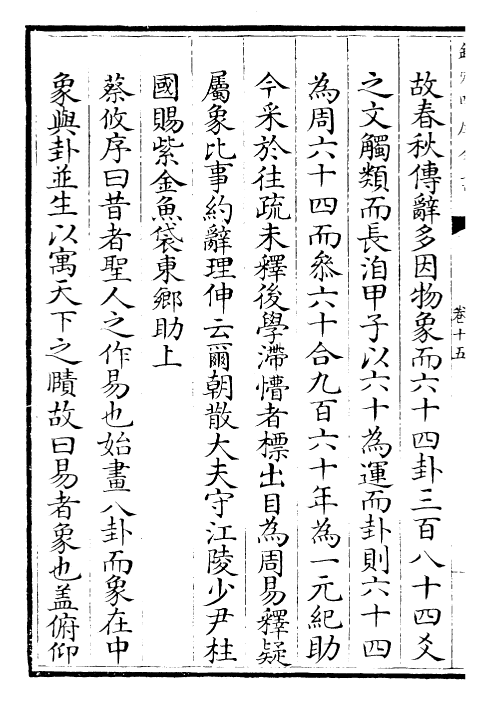 卷十五
故春秋傳辭多因物象而六十四卦三百八十四爻
之文觸類而長洎甲子以六十為運而卦則六十四
為周六十四而叅六十合九百六十年為一元紀助
今采於往疏未釋後學滯懵者標出目為周易釋疑
屬象比事約辭理伸云爾朝散大夫守江陵少尹柱
國賜紫金魚袋東鄉助上
蔡攸序曰昔者聖人之作易也始畫八卦而象在中
象與卦並生以寓天下之賾故曰易者象也盖俯仰